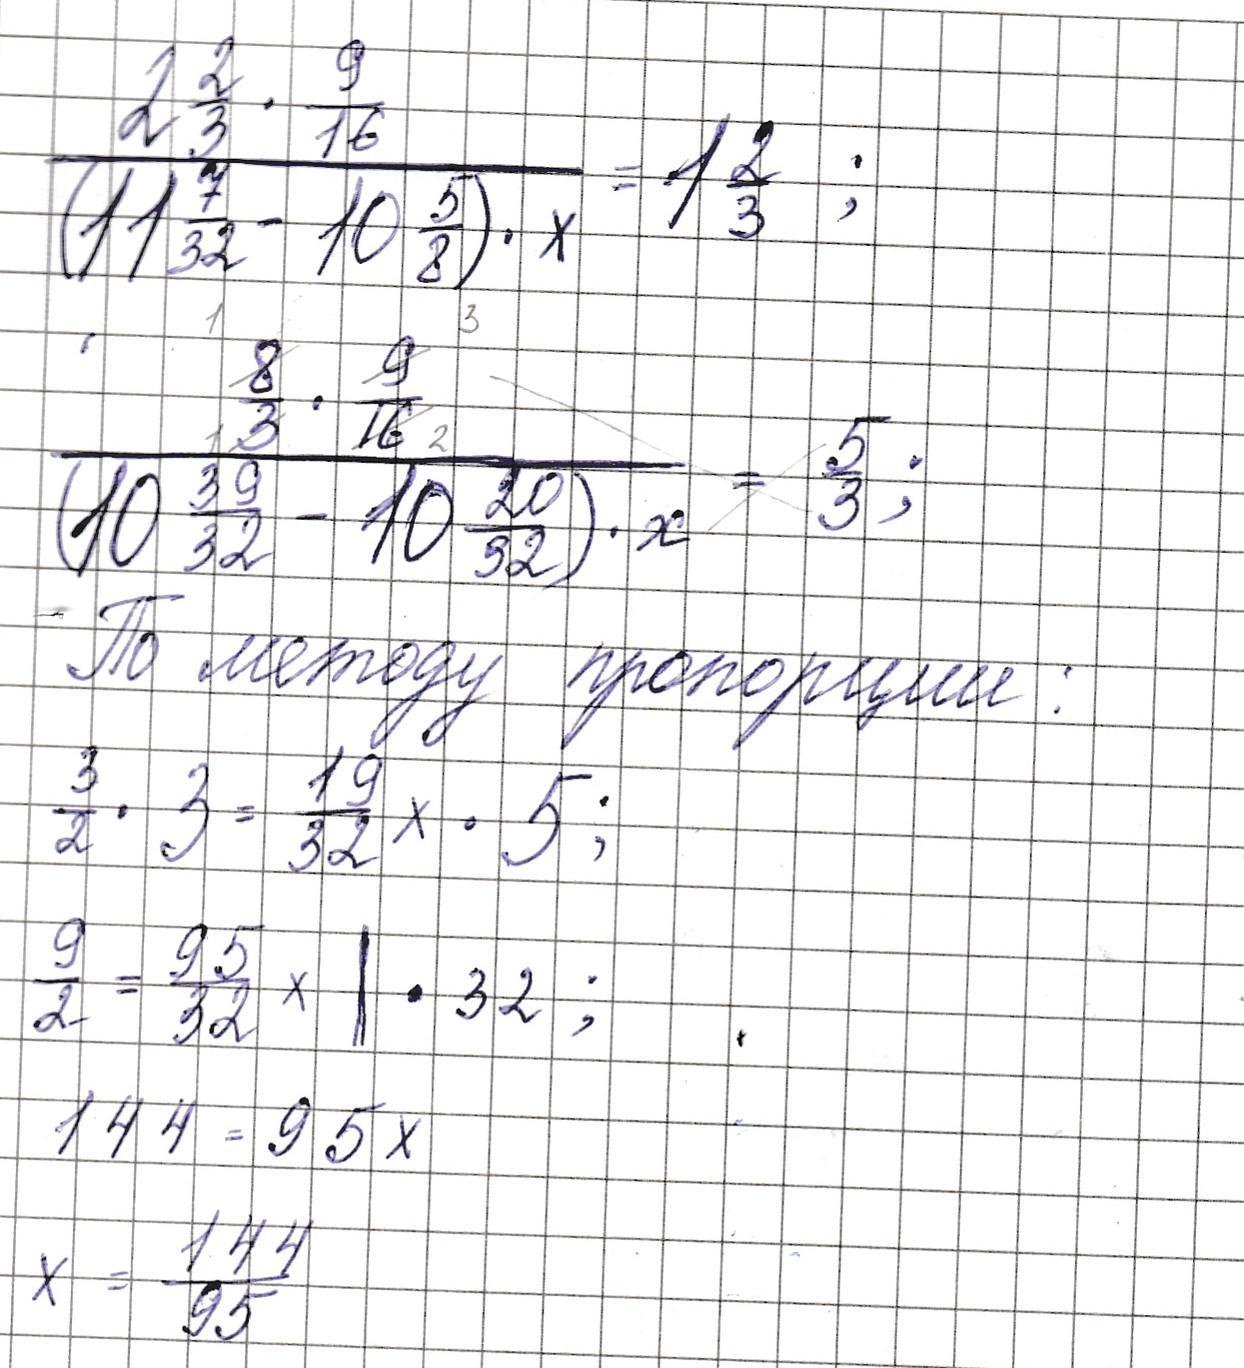 2 2/3 · 9/16
(11 7/32 - 10 5/8) · x = 1 2/3 ;
1 3
8/3 · 9/16
1 2
(10 39/32 - 10 20/32) · x = 5/3 ;
По методу пропорции :
3/2 · 3 = 19/32 x · 5 ;
9/2 = 95/32 x | · 32 ;
144 = 95 x
x = 144/95